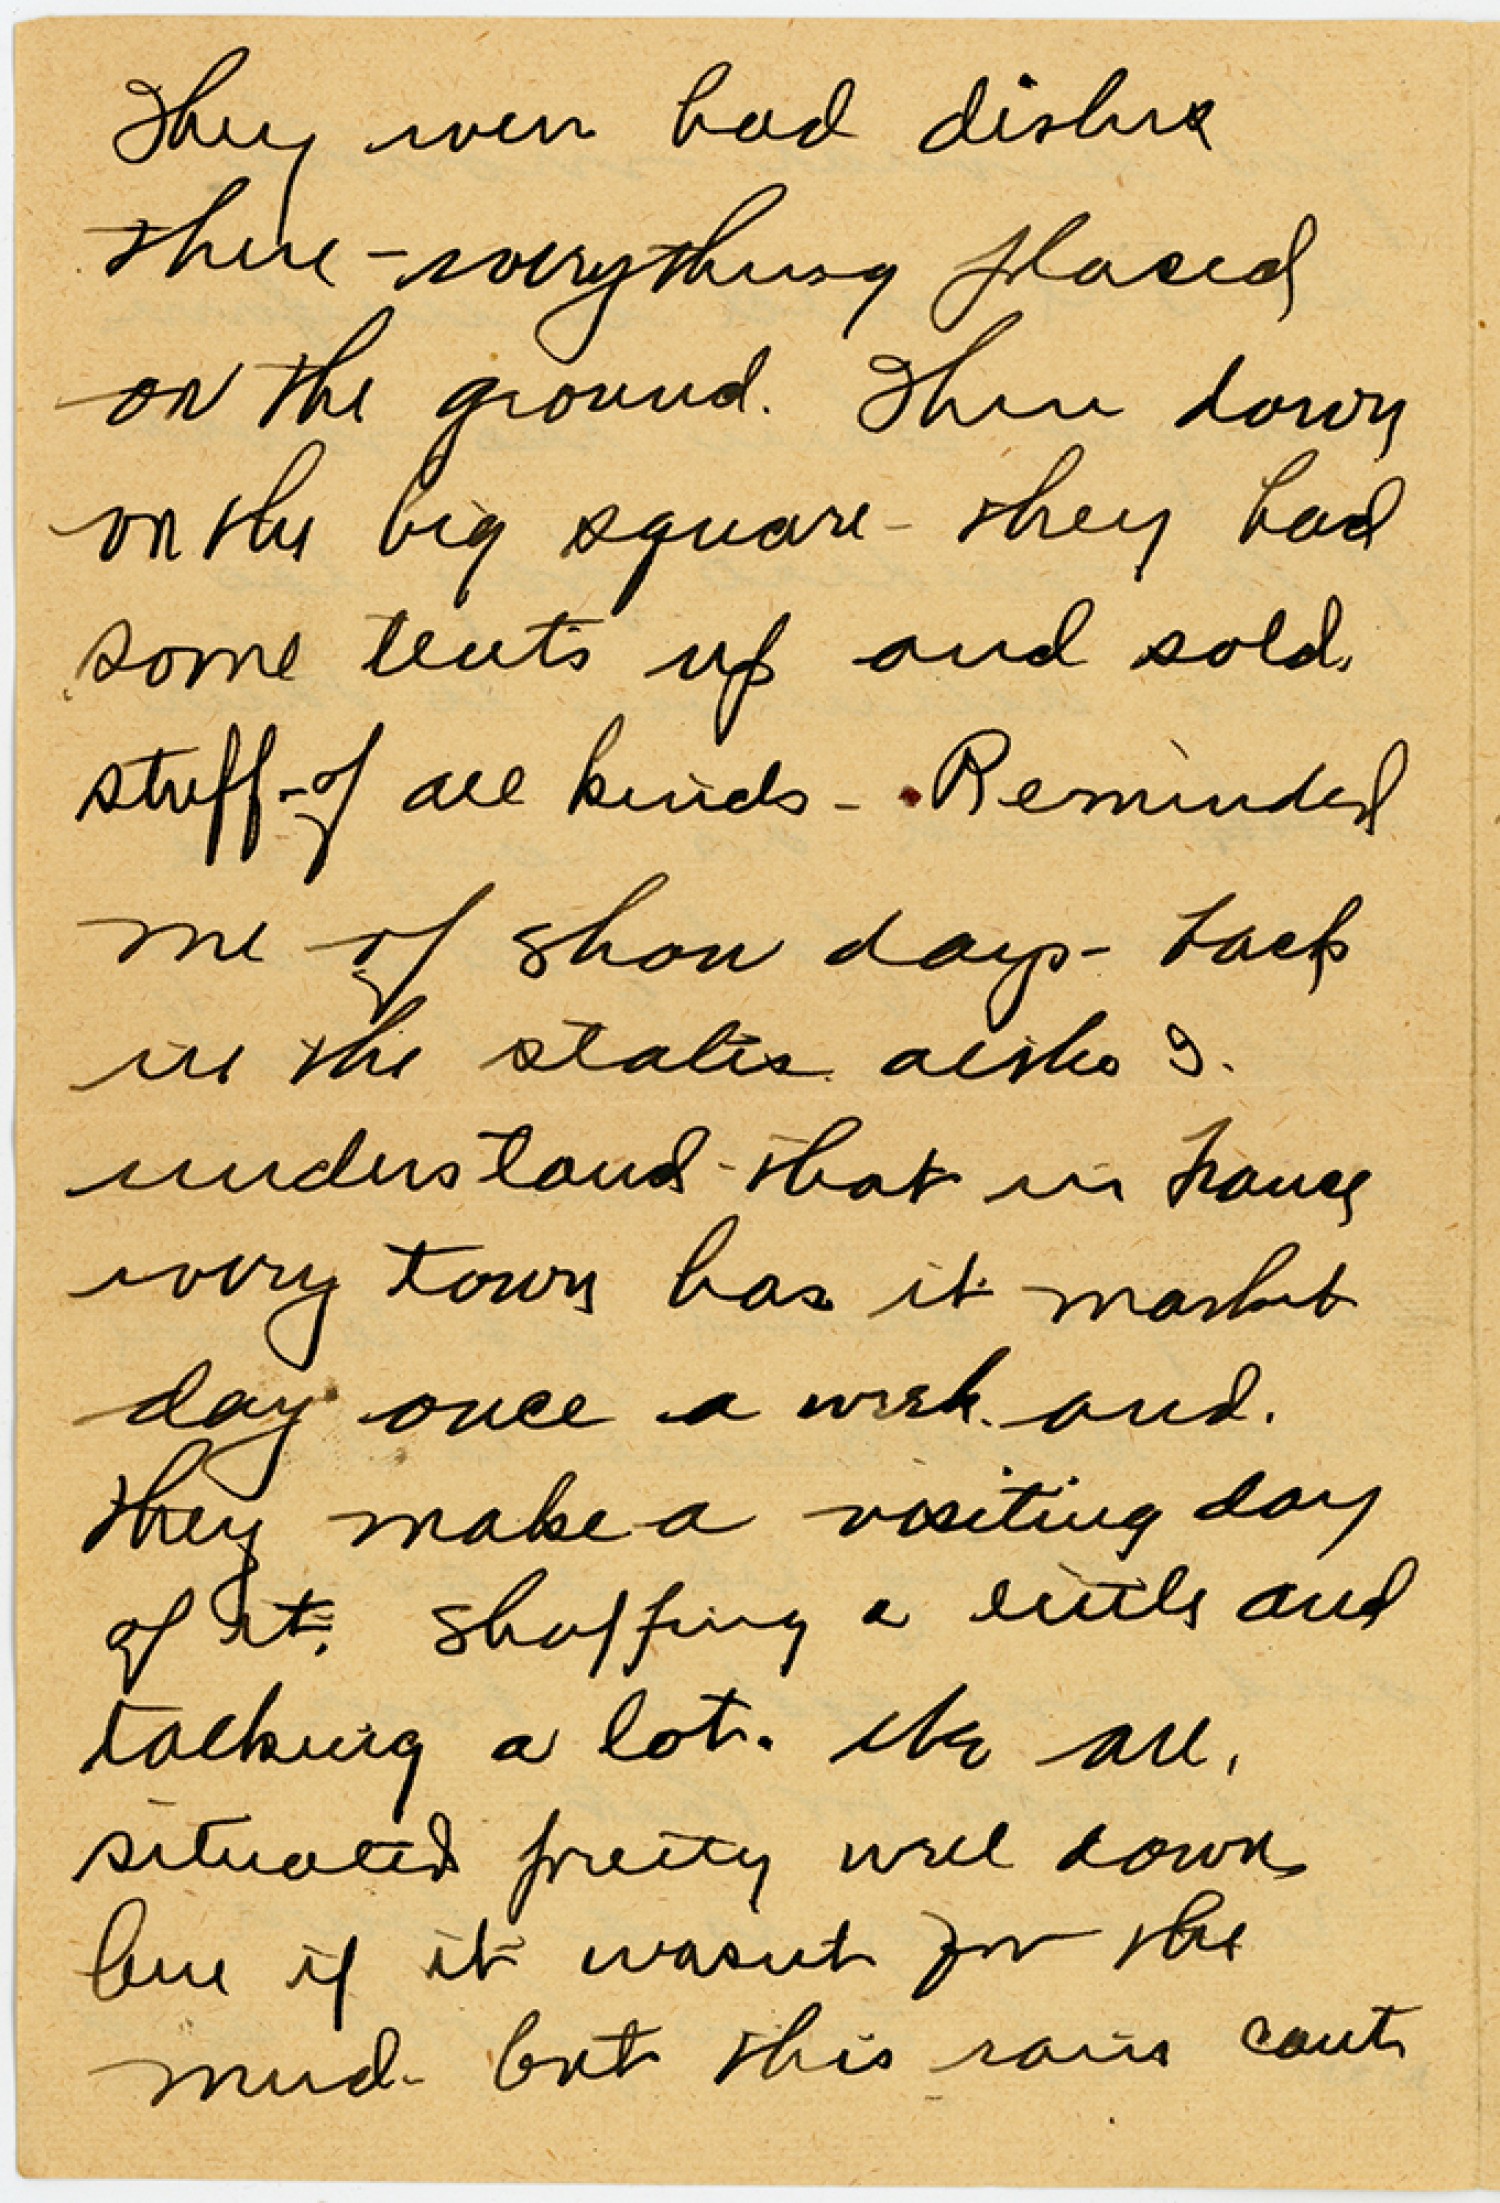 They even had dishes
there - everything placed
on the ground. Then down
on the big square - they had
some tents up and sold
stuff - of all kinds - Reminded
me of show days - back
in the states. altho I.
understand - that in France
every town has it market
day once a week. and.
they make a visiting day
of it. Shopping a little and
talking a lot. We are,
situated pretty well down
here if it wasnt for the
mud - but this rain cant